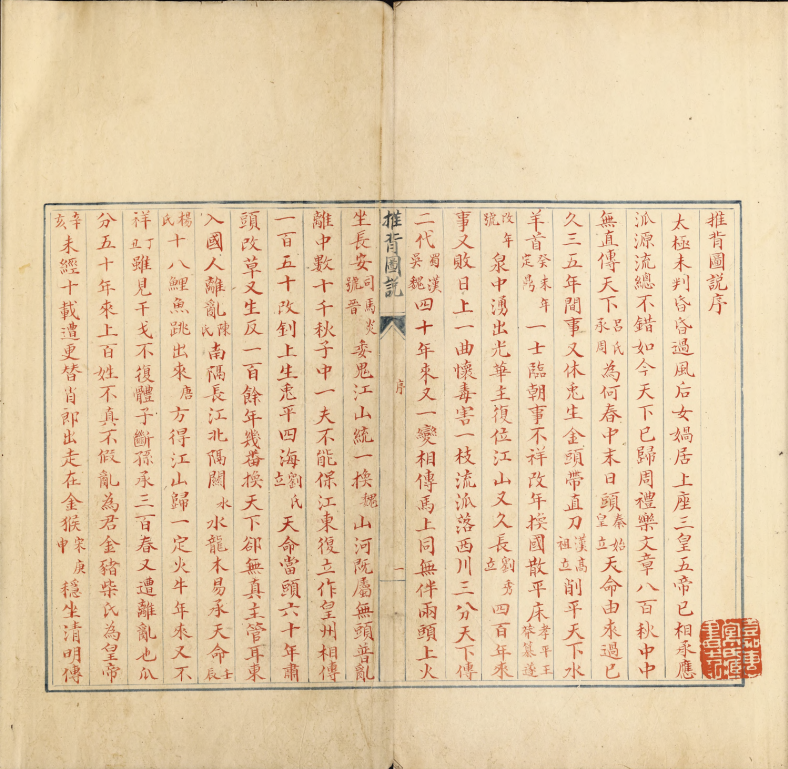 推背圖說序
太極未判昏昏過風后女媧居上座三皇五帝已相承應
派源流總不錯如今天下已歸周禮樂文章八百秋中中
無直傳天下呂氏承周為何春中末日頭秦始皇立天命由來過已
久三五年間事又休兎生金頭帶直刀漢高祖立削平天下水
羊首癸未年定局一士臨朝事不祥改年換國散平床孝平王莽篡遂
改年號泉中湧出光華主復位江山又久長劉秀立四百年來
事又敗日上一曲懷毒害一枝流派落西川三分天下傳
二代蜀漢吳魏四十年來又一變相傳馬上同無伴兩頭上火
推背圖說
序
一
坐長安司馬炎號晉委鬼江山統一換魏山河既屬無頭普亂
離中數十千秋子中一夫不能保江東復立作皇州相傳
一百五十改釗上生兎平四海劉氏立天命當頭六十年肅
頭改草又生反一百餘年幾番換天下卻無真主管耳東
入國人離亂陳氏南隅長江北隔關水水龍木易承天命壬辰
楊氏十八鯉魚跳出來唐方得江山歸一定火牛年來又不
祥丁丑雖見干戈不復體子斷孫承三百春又遭離亂也瓜
分五十年來上百姓不真不假亂為君金豬柴氏為皇帝
辛亥未經十載遭更替肖郎出走在金猴宋庚申穩坐清明傳